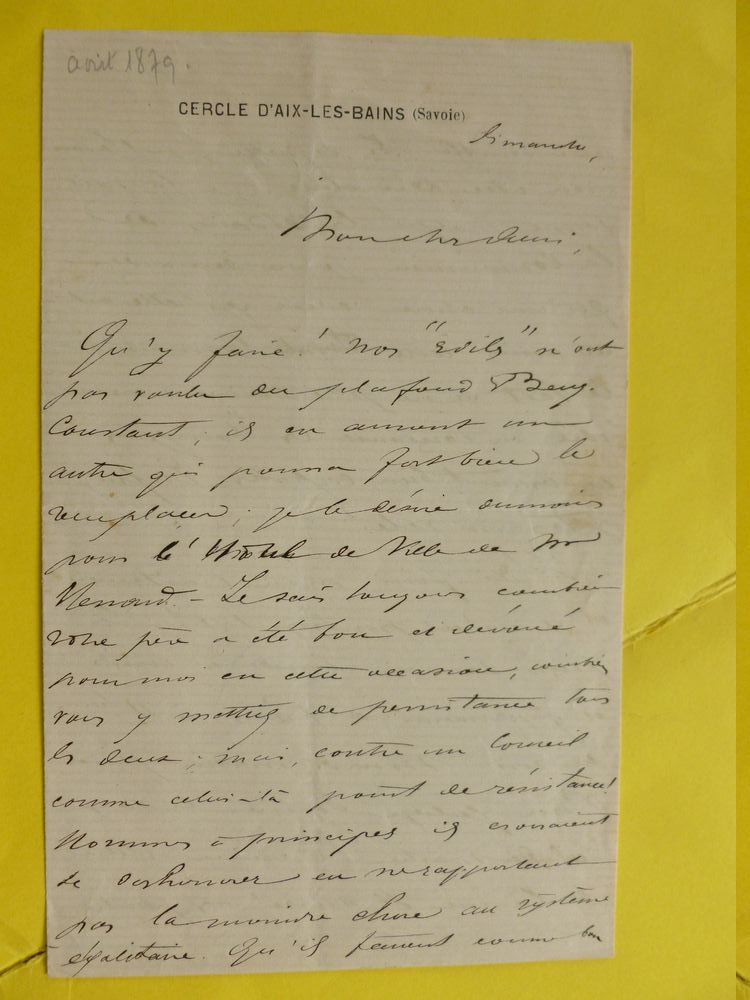 avril 1879.
CERCLE D'AIX-LES-BAINS (Savoie)
Dimanche,
Mon cher ami,
Qu'y faire! Nos "Ediles" n'ont
pas voulu du plafond Benj.
Constant, ils en auront un
autre qui pourra fort bien le
remplacer; je le désire du moins
pour l'Hôtel de Ville de Mr
. - Je sais toujours combien
votre père a été bon et dévoué
pour moi en cette occasion, combien
vous y mettiez de persistance tous
les deux; mais, contre un Conseil
comme celui-là point de résistance!
Hommes à principes ils croiraient
se déshonorer en ne rapportant
pas la moindre chose au système
égalitaire. Qu'ils fassent comme bon